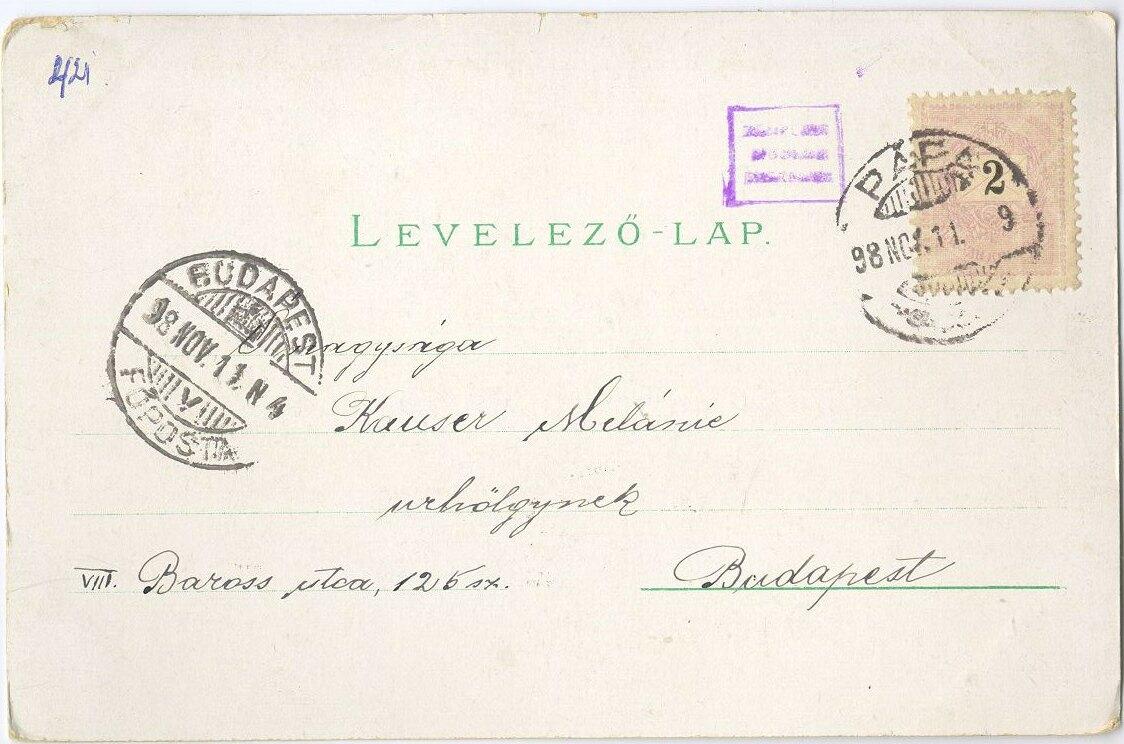 LEVELEZŐ-LAP.
PÁPA
2
98 NOV. 11. 9
BUDAPEST
98 NOV. 11. N 4
V
FŐPOSTA
nagysága
Kauser Melánie
urhölgynek
VIII. Baross utca, 126 sz.
Budapest